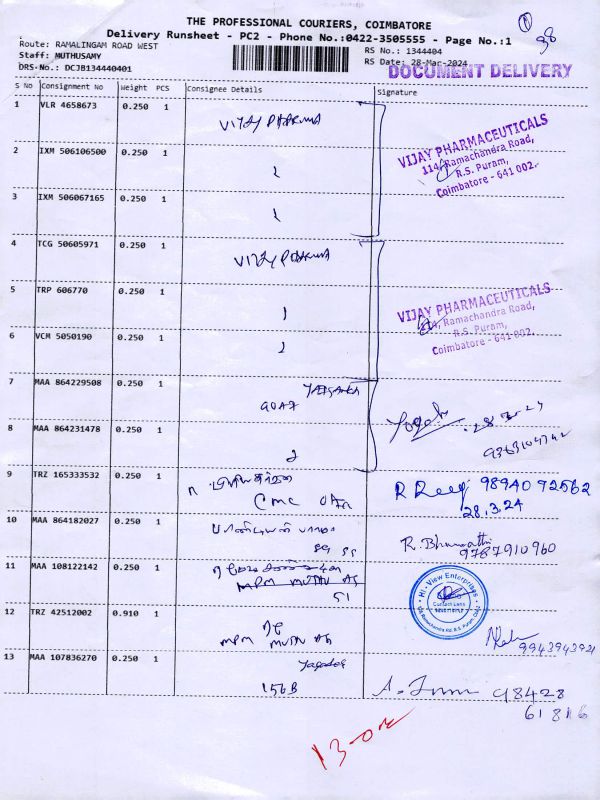 THE PROFESSIONAL COURIERS, COIMBATORE
Delivery Runsheet - PC2 - Phone No.:0422-3505555 - Page No.:1
Route: RAMALINGAM ROAD WEST
RS No: 1344404
98
Staff: MUTHUSAMY
RS Date: 28-Mar-2024
DRS-No.: DCJB134440401
DOCUMENT DELIVERY
S No Consignment No Weight PCS Consignee Details Signature
1 VLR 4658673 0.250 1 VIJAY PHARMA
VIJAY PHARMACEUTICALS
114, Ramachandra Road,
R.S. Puram,
Coimbatore - 641 002.
2 IXM 506106500 0.250 1
3 IXM 506067165 0.250 1
4 TCG 50605971 0.250 1 VIJAY PHARMA
5 TRP 606770 0.250 1
VIJAY PHARMACEUTICALS
114, Ramachandra Road,
R.S. Puram,
Coimbatore - 641 002.
6 VCM 5050190 0.250 1
7 MAA 864229508 0.250 1
8 MAA 864231478 0.250 1
9 TRZ 165333532 0.250 1
CMC
9894092562
28.3.24
10 MAA 864182027 0.250 1
R. Bharathi
9787910960
11 MAA 108122142 0.250 1
MPM MUTHU AG
51
Hi-View Enterprises
Contact Lens
12 TRZ 42512002 0.910 1
MPM MUTHU AG
9943943921
13 MAA 107836270 0.250 1
156B
98428
61816
13-OK